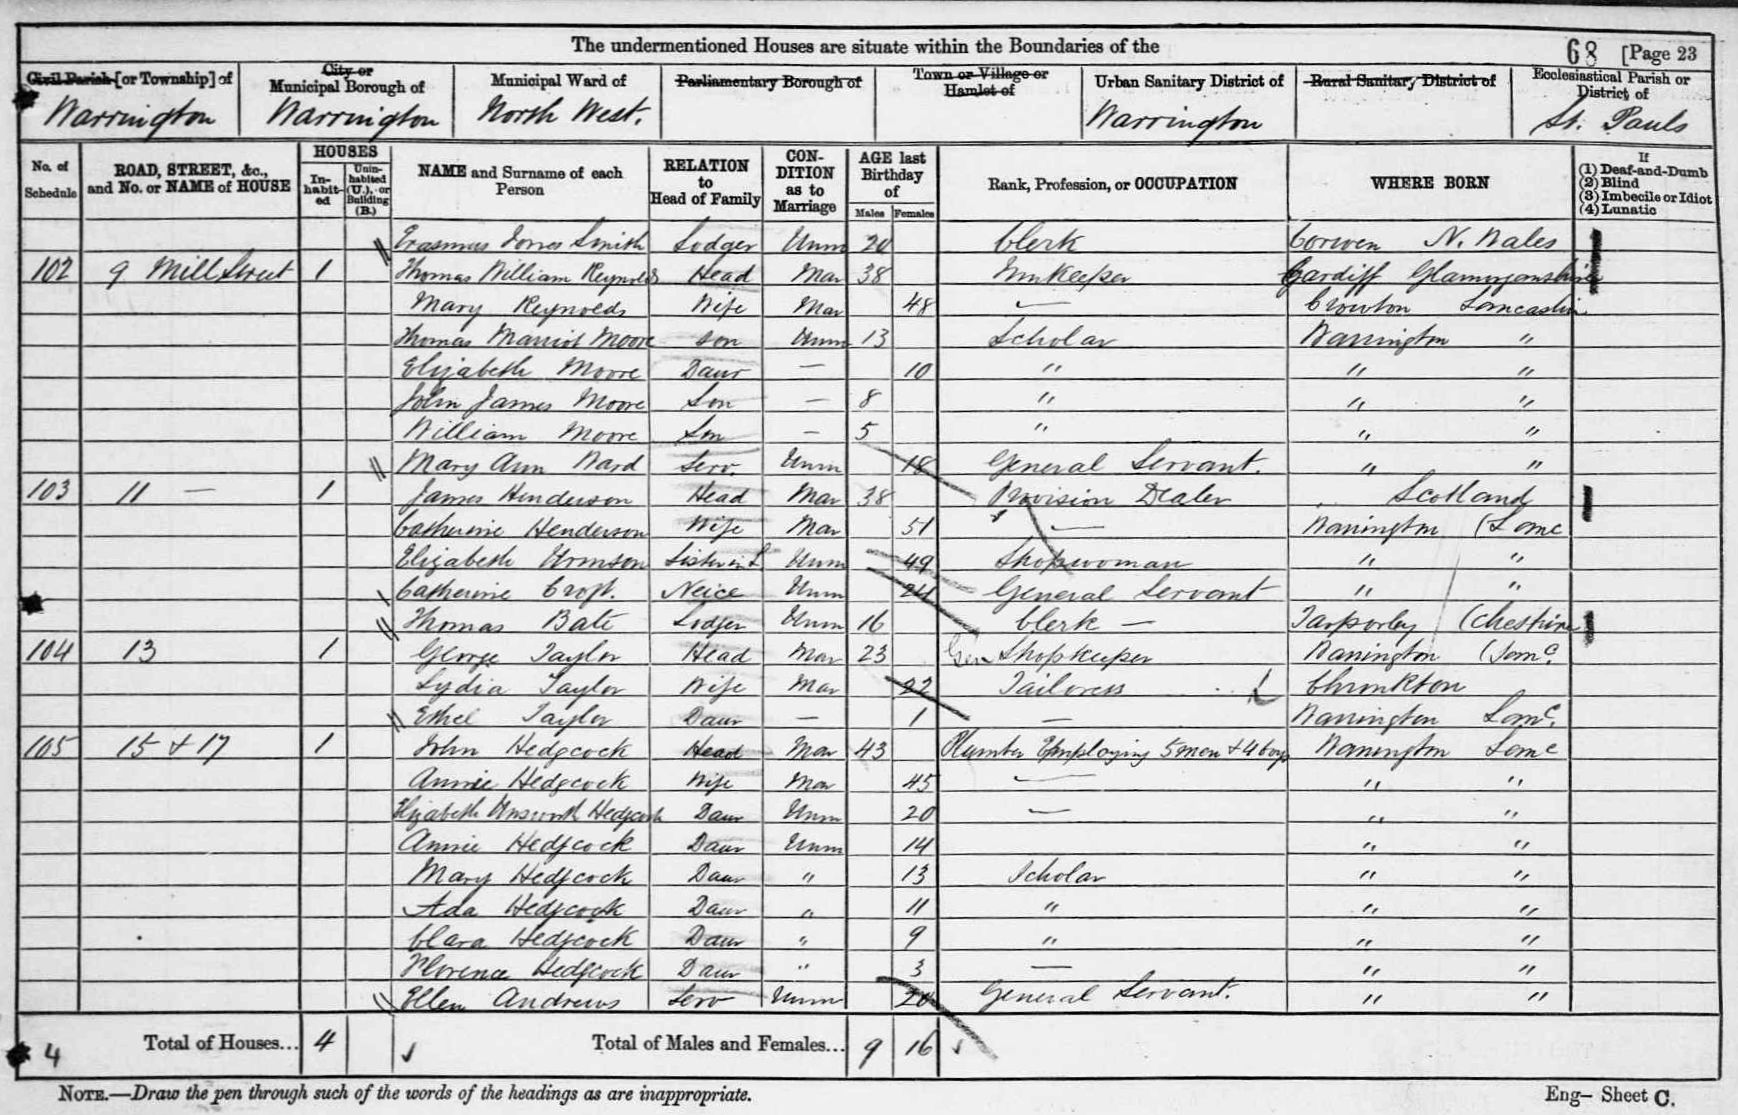 The undermentioned Houses are situate within the Boundaries of the 68 [Page 23
Civil Parish [or Township] of City or Municipal Borough of Municipal Ward of Parliamentary Borough of Town or Village or Hamlet of Urban Sanitary District of Rural Sanitary District of Ecclesiastical Parish or District of
Warrington Warrington North West. Warrington St. Pauls
No. of Schedule ROAD, STREET, &c., and No. or NAME of HOUSE HOUSES In-habit-ed Unin-habited (U.), or Building (B.) NAME and Surname of each Person RELATION to Head of Family CON-DITION as to Marriage AGE last Birthday of Males Females Rank, Profession, or OCCUPATION WHERE BORN If (1) Deaf-and-Dumb (2) Blind (3) Imbecile or Idiot (4) Lunatic
Erasmus Jones Smith Lodger Unm 20 Clerk Corwen N. Wales
102 9 Mill Street 1 Thomas William Reynolds Head Mar 38 Innkeeper Cardiff Glamorganshire
Mary Reynolds Wife Mar 48 — Lancashire
Thomas Marriot Moore Son Unm 13 Scholar Warrington "
Elizabeth Moore Daur — 10 " " "
John James Moore Son — 8 " " "
William Moore Son — 5 " " "
Mary Ann Ward Serv Unm 18 General Servant. " "
103 11 — 1 James Henderson Head Mar 38 Provision Dealer Scotland
Catherine Henderson Wife Mar 51 — Warrington (Lanc
Elizabeth Urmson Sister in L Unm 49 Shopwoman " "
Catherine Croft. Neice Unm 24 General Servant " "
Thomas Bate Lodger Unm 16 Clerk — Tarporley (Cheshire
104 13 1 George Taylor Head Mar 23 Gen Shopkeeper Warrington (Lanc.
Lydia Taylor Wife Mar 22 Tailoress
Ethel Taylor Daur — 1 — Warrington Lanc.
105 15 + 17 1 John Hedgcock Head Mar 43 Plumber Employing 5 men + 4 boys Warrington Lanc
Annie Hedgcock Wife Mar 45 — " "
Elizabeth Unsworth Hedgcock Daur Unm 20 — " "
Annie Hedgcock Daur Unm 14 " "
Mary Hedgcock Daur " 13 Scholar " "
Ada Hedgcock Daur " 11 " " "
Clara Hedgcock Daur " 9 " " "
Florence Hedgcock Daur " 3 — " "
Ellen Andrews Serv Unm 20 General Servant. " "
4 Total of Houses... 4 Total of Males and Females... 9 16
NOTE.—Draw the pen through such of the words of the headings as are inappropriate. Eng– Sheet C.